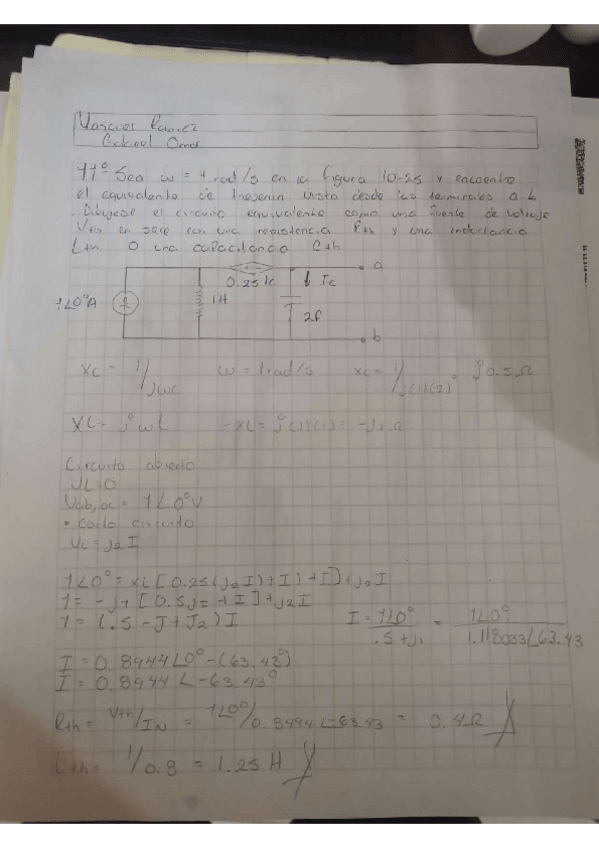 Gabriel Omar
11° Sea ω = 1 rad/s en la figura 10-25 y encuentre
el equivalente de thevenin visto desde las terminales a b
. Dibujese el circuito equivalente como una fuente de voltaje
Vth en serie con una resistencia Rth y una inductancia
Lth O una capacitancia Cth
a
0.25 Ic
↓ Ic
1∠0°A
1H
2f
b
XC = 1/jωc ω = 1rad/s xc = 1/j(1)(2) = j0.5Ω
XL = jωL -XL = j(1)(1) = -j1 Ω
Circuito abierto
VL=0
Vab,oc = 1∠0°V
• corto circuito
VL = j2 I
1∠0° = XL[0.25(j2I)+I)+I]+j2I
1 = -j1[0.5j= +I]+j2I
1 = (.5 - J + J2)I I = 1∠0°/.5+j1 = 1∠0°/1.118033∠63.43
I = 0.8944∠0°-(63.43°)
I = 0.8944 ∠-63.43°
Rth = Vth/IN = 1∠0°/0.8944∠-63.43 = 0.4Ω
Lth = 1/0.8 = 1.25 H